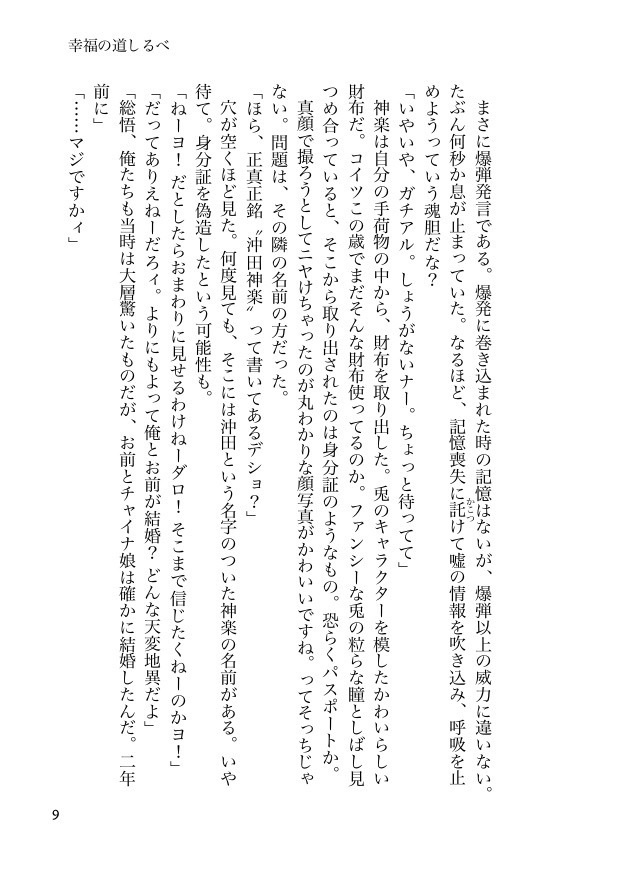 幸福の道しるべ
まさに爆弾発言である。爆発に巻き込まれた時の記憶はないが、爆弾以上の威力に違いない。
たぶん何秒か息が止まっていた。なるほど、記憶喪失に託けて嘘の情報を吹き込み、呼吸を止
かこつ
めようっていう魂胆だな?
「いやいや、ガチアル。しょうがないナー。ちょっと待ってて」
神楽は自分の手荷物の中から、財布を取り出した。兎のキャラクターを模したかわいらしい
財布だ。コイツこの歳でまだそんな財布使ってるのか。ファンシーな兎の粒らな瞳としばし見
つめ合っていると、そこから取り出されたのは身分証のようなもの。恐らくパスポートか。
真顔で撮ろうとしてニヤけちゃったのが丸わかりな顔写真がかわいいですね。ってそっちじゃ
ない。問題は、その隣の名前の方だった。
「ほら、正真正銘〝沖田神楽〟って書いてあるデショ?」
穴が空くほど見た。何度見ても、そこには沖田という名字のついた神楽の名前がある。いや
待て。身分証を偽造したという可能性も。
「ねーヨ! だとしたらおまわりに見せるわけねーダロ! そこまで信じたくねーのかヨ!」
「だってありえねーだろィ。よりにもよって俺とお前が結婚? どんな天変地異だよ」
「総悟、俺たちも当時は大層驚いたものだが、お前とチャイナ娘は確かに結婚したんだ。二年
前に」
「……マジですかィ」
9